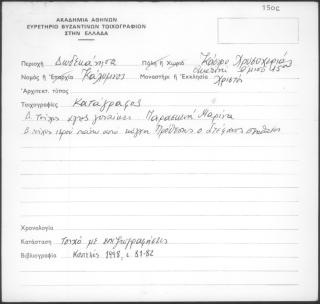 15ος
ΑΚΑΔΗΜΙΑ ΑΘΗΝΩΝ
ΕΥΡΕΤΗΡΙΟ ΒΥΖΑΝΤΙΝΩΝ ΤΟΙΧΟΓΡΑΦΙΩΝ
ΣΤΗΝ ΕΛΛΑΔΑ
Περιοχή Δωδεκάνησα Πόλη ή Χωριό Κάστρο Χρυσοχεριάς
Νομός ή Επαρχία Κάλυμνος Μοναστήρι ή Εκκλησία Χριστός
Αρχιτεκτ. τύπος
Τοιχογραφίες Κατάγραφος
Β. τοίχος αγίες γυναίκες Παρασκευή Μαρίνα
Β. τοίχος ιερού πάνω από κόγχη Πρόθεσης ο Στέφανος
Χρονολογία
Κατάσταση Τοιχο με επιζωγραφήσεις
Βιβλιογραφία 1998, σ. 81-82